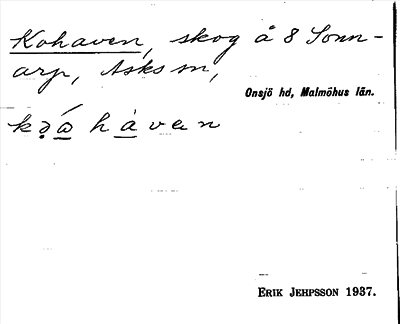 Kohaven, skog å 8 Sonn-
arp, Asks sn,
Onsjö hd, Malmöhus län.
hàven
ERIK JEHPSSON 1937.